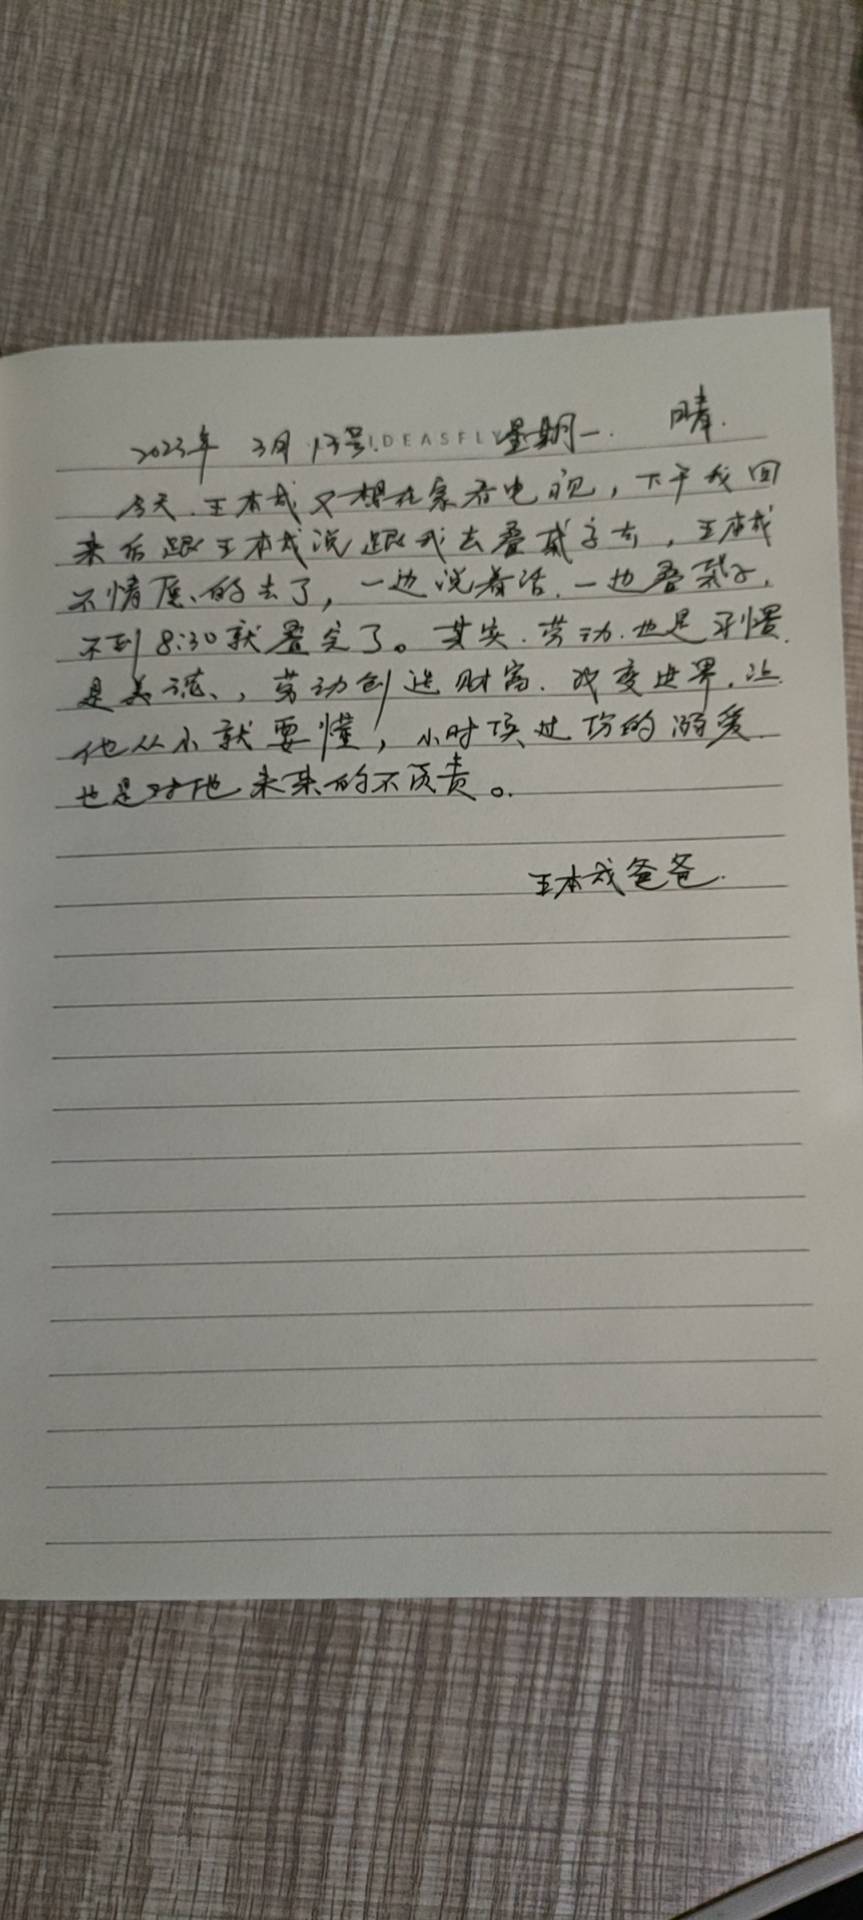 IDEASFLY
2023年 3月13号. 星期一. 晴.
今天.王本成又想在家看电视，下午我回
来后跟王本成说跟我去叠袋子去，王本成
不情愿的去了，一边说着话.一边叠袋子.
不到8:30就叠完了。其实.劳动.也是习惯.
是美德、，劳动创造财富.改变世界.让
他从小就要懂，小时候过份的溺爱.
也是对他未来的不负责。
王本成爸爸.